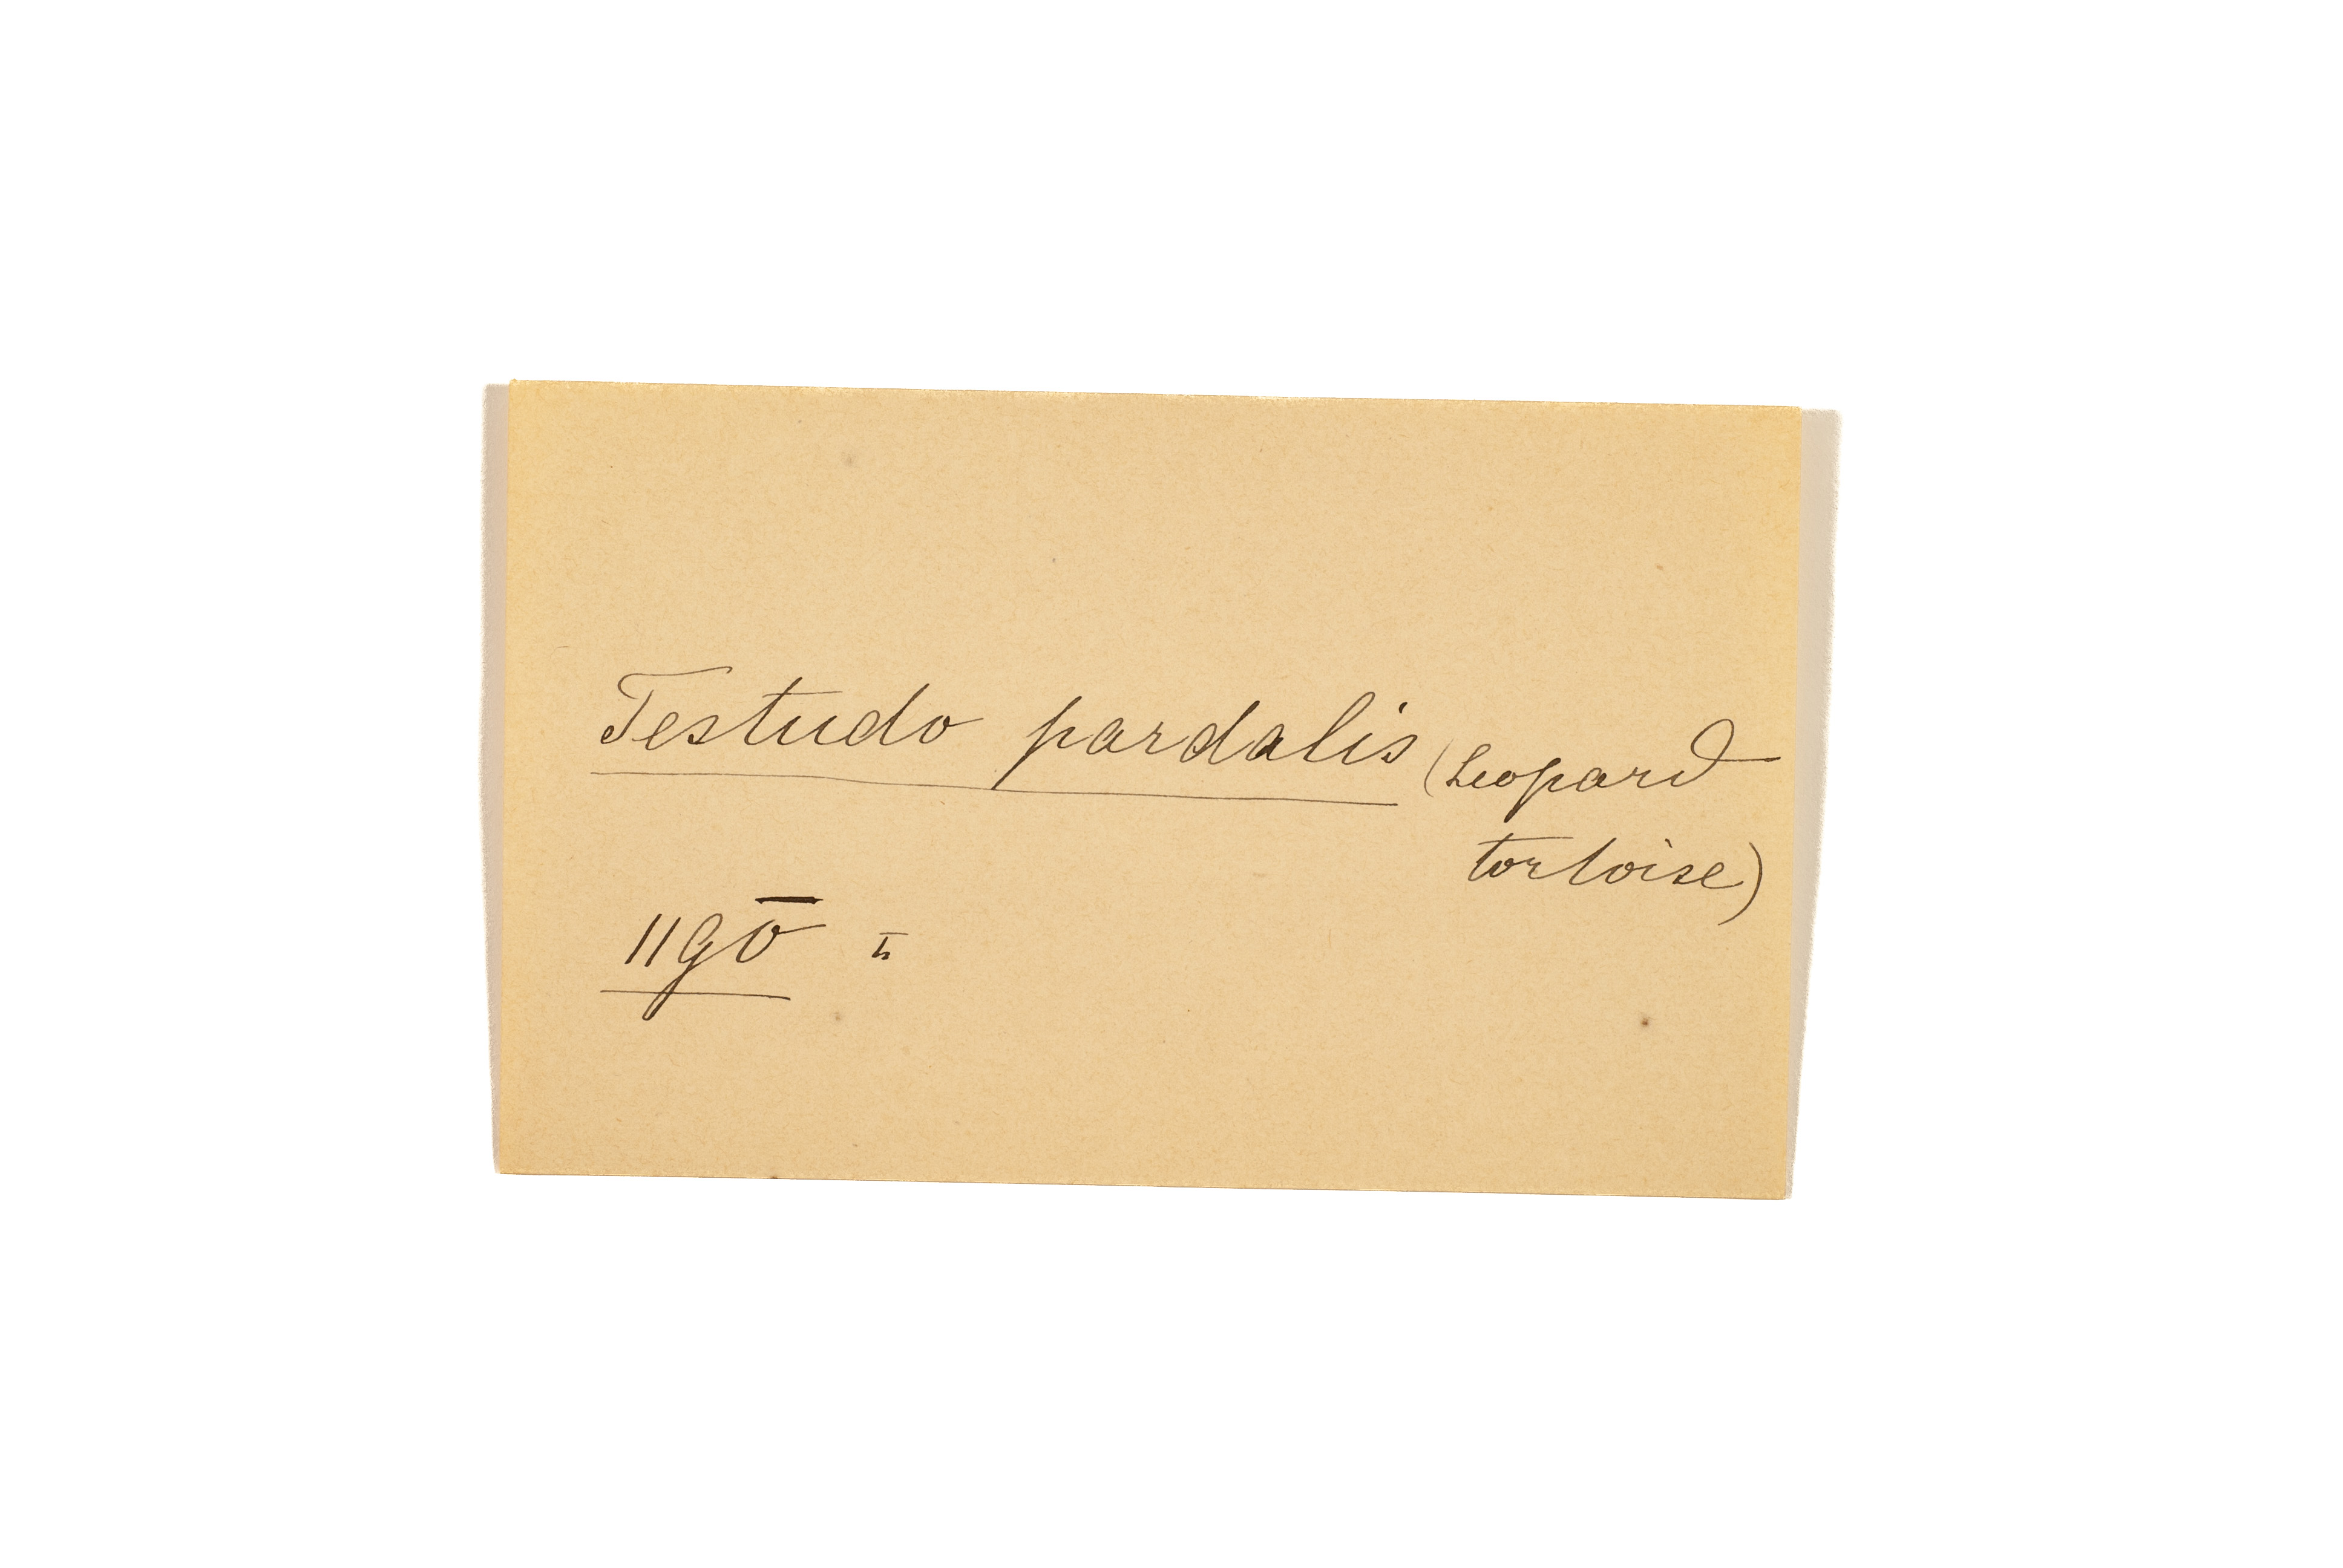 Testudo pardalis (Leopard
tortoise)
ǁgō